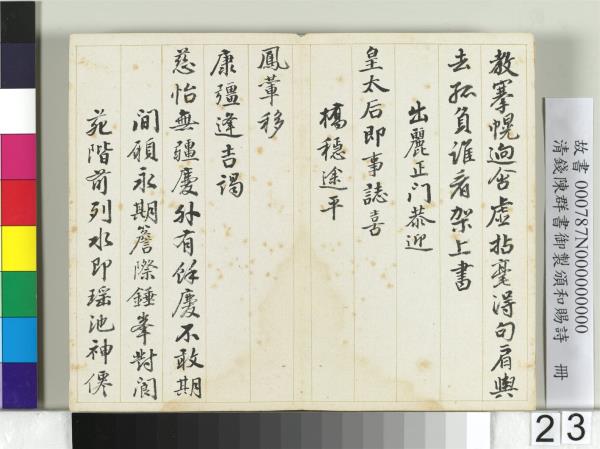 教搴幌迥含虛拈毫得句肩輿
去孤負誰看架上書
出麗正门恭迎
皇太后即事誌喜
橋穩途平
鳳輦移
康彊逢吉謁
慈怡無疆慶外有餘慶不敢期
間願永期簷際錘峯對閬
苑階前列水即瑶池神僊
故書 000787N000000000
清錢陳群書御製頒和賜詩 冊
23